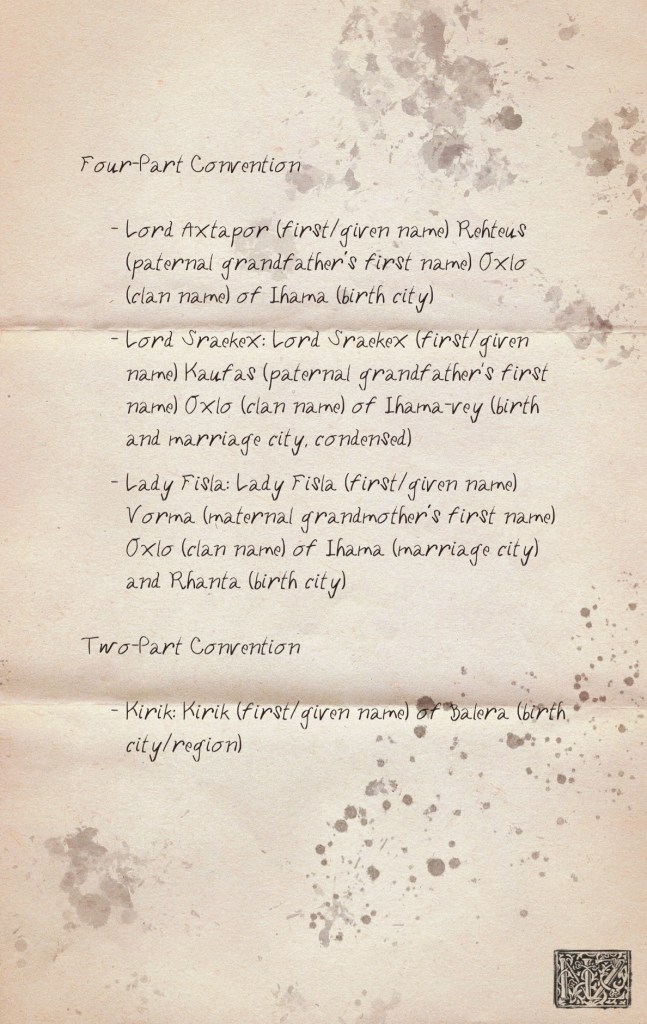 Four-Part Convention
- Lord Axtapor (first/given name) Rehteus
(paternal grandfather's first name) Oxlo
(clan name) of Ihama (birth city)
- Lord Sraekex: Lord Sraekex (first/given
name) Kaufas (paternal grandfather's first
name) Oxlo (clan name) of Ihama-vey (birth
and marriage city, condensed)
- Lady Fisla: Lady Fisla (first/given name)
Vorma (maternal grandmother's first name)
Oxlo (clan name) of Ihama (marriage city)
and Rhanta (birth city)
Two-Part Convention
- Kirik: Kirik (first/given name) of Balera (birth
city/region)